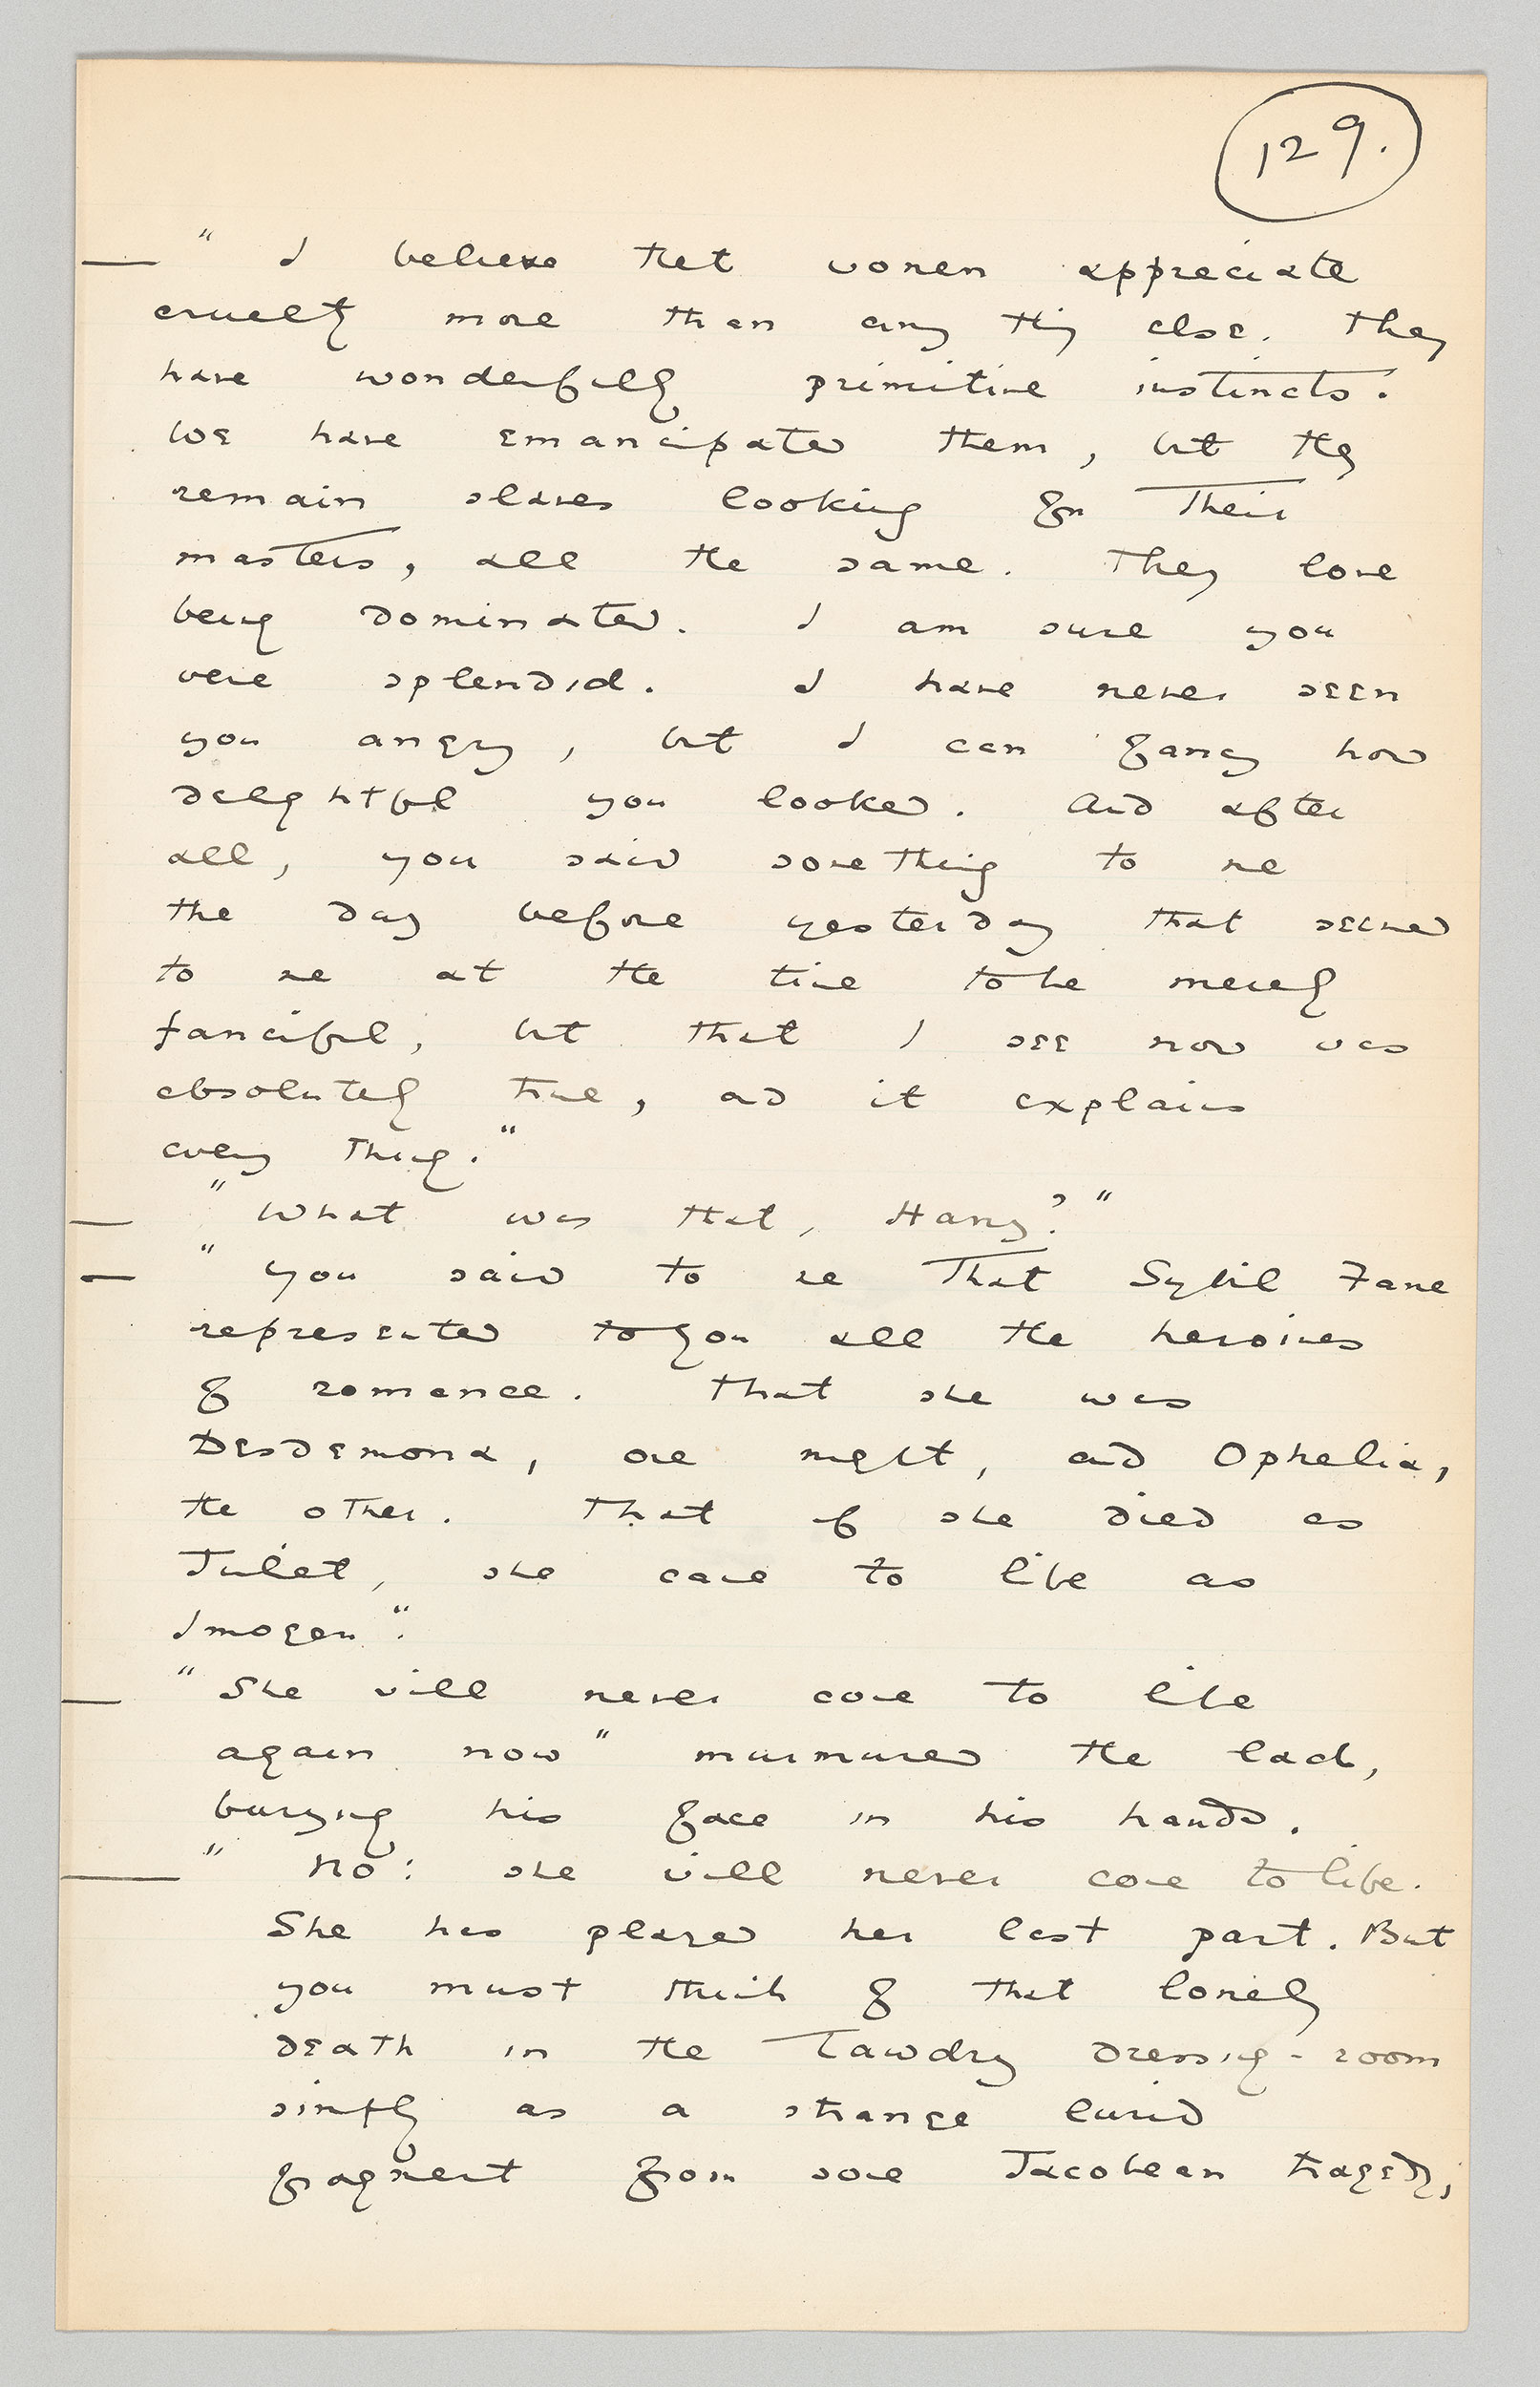 129.
— " I believe that women appreciate
cruelty more than any thing else. They
have wonderfully primitive instincts.
We have emancipated them, but they
remain slaves looking for their
masters, all the same. They love
being dominated. I am sure you
were splendid. I have never seen
you angry, but I can fancy how
delightful you looked. And after
all, you said something to me
the day before yesterday that seemed
to me at the time to be merely
fanciful, but that I see now was
absolutely true, and it explains
every thing."
— " What was that, Harry? "
— " you said to me that Sybil Fane
represented to you all the heroines
of romance. That she was
Desdemona, one night, and Ophelia,
the other. That if she died as
Juliet, she came to life as
Imogen".
— " She will never come to life
again now " murmured the lad,
burying his face in his hands.
— " No: she will never come to life.
She has played her last part. But
you must think of that lonely
death in the tawdry dressing-room
simply as a strange lurid
fragment from some Jacobean tragedy,